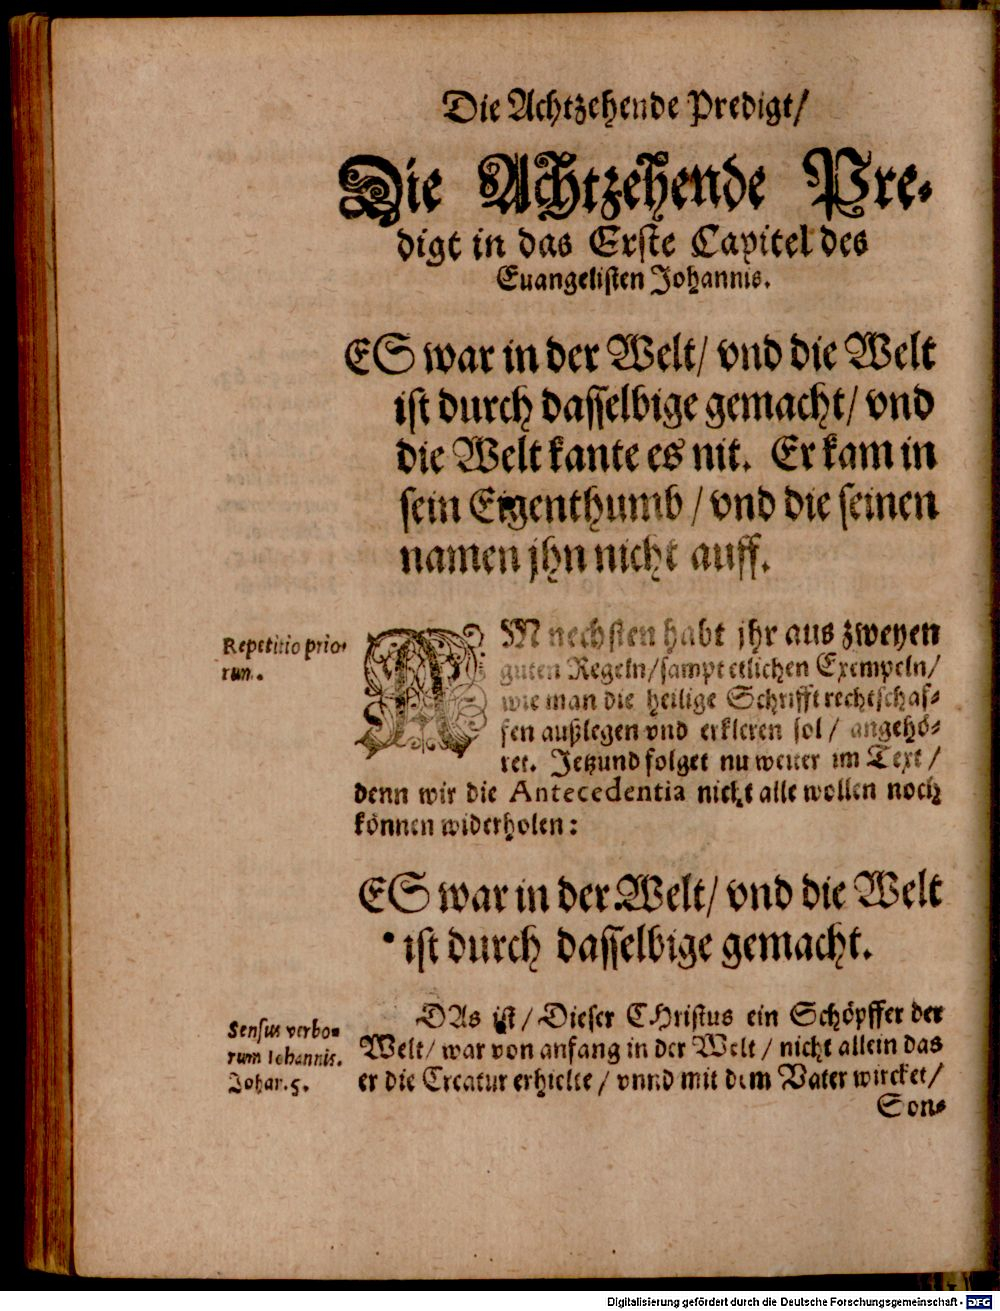 Die Achtzehende Predigt/
Die Achtzehende Pre-
digt in das Erste Capitel des
Euangelisten Johannis.
ES war in der Welt/ vnd die Welt
ist durch dasselbige gemacht/ vnd
die Welt kante es nit. Er kam in
sein Eigenthumb / vnd die seinen
namen jhn nicht auff.
Repetitio prio-
rum.
AM nechsten habt jhr aus zweyen
guten Regeln/sampt etlichen Exempeln/
wie man die heilige Schrifft rechtschaf-
fen außlegen vnd erkleren sol / angehö-
ret. Jetzund folget nu weiter im Text /
denn wir die Antecedentia nicht alle wollen noch
können widerholen:
ES war in der Welt/ vnd die Welt
ist durch dasselbige gemacht.
Sensus verbo-
rum Iohannis.
Johan. 5.
DAs ist / Dieser CHristus ein Schöpffer der
Welt/ war von anfang in der Welt / nicht allein das
er die Creatur erhielte / vnnd mit dem Vater wircket/
Son-
Digitalisierung gefördert durch die Deutsche Forschungsgemeinschaft - DFG